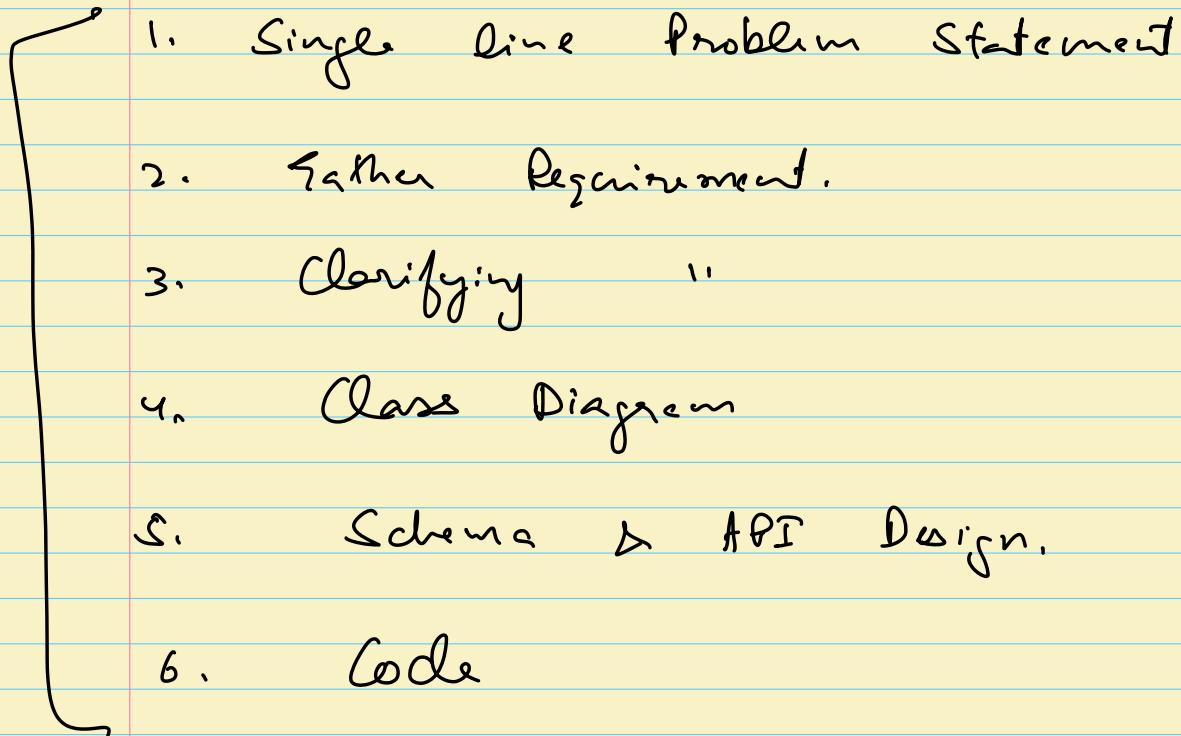 1. Single line Problem Statement
2. Gather Requirement.
3. Clarifying "
4. Class Diagram
5. Schema & API Design.
6. Code